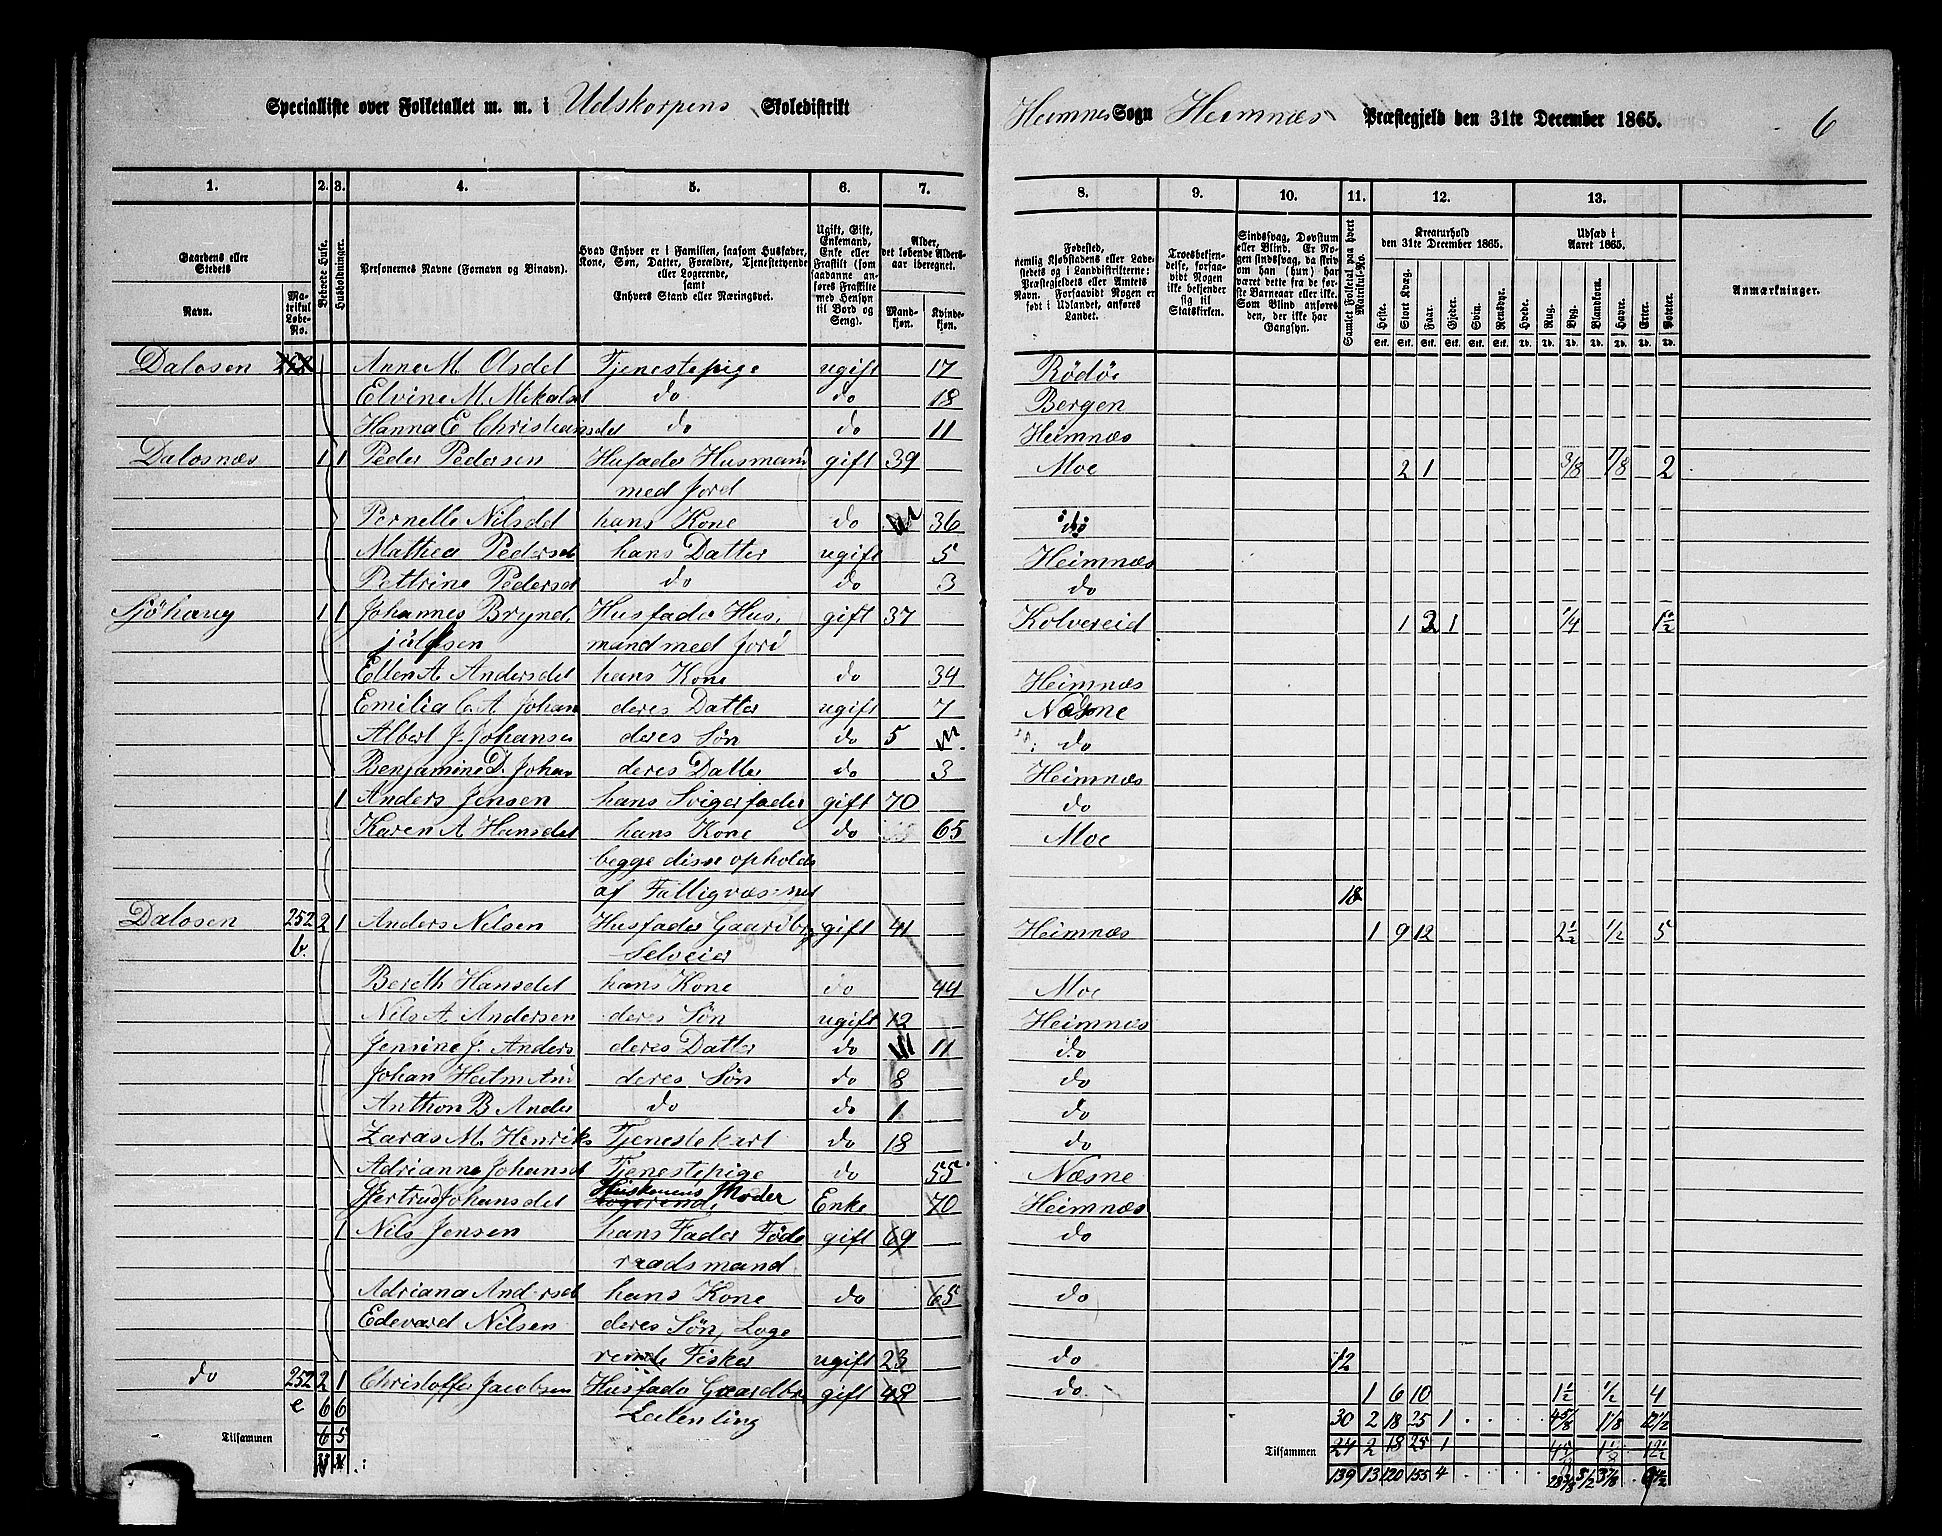 Specialliste over Folketallet m. m. i Udskarpens Skoledistrikt
Hemnes Sogn Hemnæs Præstegjeld den 31te December 1865. 6
1. 2. 3. 4. 5. 6. 7. 8. 9. 10. 11. 12. 13.
Gaardens eller Stedets
Navn.
Matrikul Løbe-No.
Beboede Huse.
Husholdninger.
Personernes Navne (Fornavn og Binavn).
Hvad Enhver er i Familien, saasom Husfader, Kone, Søn, Datter, Forældre, Tjenestetyende eller Logerende, samt Enhvers Stand eller Næringsvei.
Ugift, Gift, Enkemand, Enke eller Fraskilt (som saadanne anføres Fraskilte med Hensyn til Bord og Seng).
Alder, det løbende Aldersaar iberegnet.
Mandkjøn. Kvindekjøn.
Fødested, nemlig Kjøbstadens eller Ladestedets og i Landdistrikterne: Præstegjeldets eller Amtets Navn. Forsaavidt Nogen er født i Udlandet, anføres Landet.
Troesbekjendelse, forsaavidt Nogen ikke bekjender sig til Statskirken.
Sindssvag, Døvstum eller Blind. Er Nogen sindssvag, da skriv om han (hun) har været dette fra de første Barneaar eller ikke. Som Blind anføres den, der ikke har Gangsyn.
Samlet Folketal paa hvert Matrikul-No.
Kreaturhold den 31te December 1865.
Heste. Stort Kvæg. Faar. Gjeder. Svin. Rensdyr.
Udsæd i Aaret 1865.
Hvede. Rug. Byg. Blandkorn. Havre. Erter. Poteter.
Anmærkninger.
Stk. Stk. Stk. Stk. Stk. Stk. Td. Td. Td. Td. Td. Td. Td.
Dalosen Anne M. Olsdet Tjenestepige ugift 17 Rödöe
Elvine M Mikalsd do do 18 Bergen
Hanna E Christiansdet do do 11 Heimnæs
Dalosnæs 1 1 Peder Pedersen Husfader Husmand gift 39 Moe 2 1 3/8 1/8 2
med Jord
Pernelle Nilsdet hans Kone do 36 do
Mathea Pedersd hans Datter ugift 5 Heimnæs
Pettrine Pedersd do do 3 do
Sjöhaug 1 1 Johannes Brynd Husfader Hus gift 37 Kolvereid 1 1 1/4 1½
julfsen mand med Jord
Ellen A Andersdet hans Kone do 34 Heimnæs
Emilia C. A Johan deres Datter ugift 7 Næsne
Albert J. Johansen deres Søn do 5 do
Benjamine D. Johan deres Datter do 3 Heimnæs
1 Anders Jensen hans Svigerfader gift 70 do
Karen A Hansdet hans Kone do 65 Moe
begge disse opholdes
af Fattigvæsenet 18
Dalosen 252 2 1 Anders Nilsen Husfader Gaardbr gift 41 Heimnæs 1 9 12 2½ 1/2 5
b. Selveier
Bereth Hansdet hans Kone do 44 Moe
Nils A Andersen deres Søn ugift 12 Heimnæs
Jensine J. Anders deres Datter do 11 do
Johan Heilm And deres Søn do 8 do
Anthon B Ander do do 1 do
Zaras M. Henriks Tjenestekarl do 18 do
Adrianna Johansd Tjenestepige do 55 Næsne
Gjertrud Johansdet Huskonens Moder Enke 70 Heimnæs
1 Nils Jensen hans Fader Föde gift 69 do
raadsmand
Adriana Andersd hans Kone do 65 do
Edevard Nilsen deres Søn, Loge
rende Fisker ugift 23 do 12
do 252 2 1 Christoffer Jacobsen Husfader Gaardbr gift 48 do 1 6 10 1½ 1/2 4
e 6 6 Leilending 30 2 18 25 1 4 5/8 1 1/8 12½
Tilsammen 6 5 Tilsammen 24 2 18 25 1
139 13 120 155 4